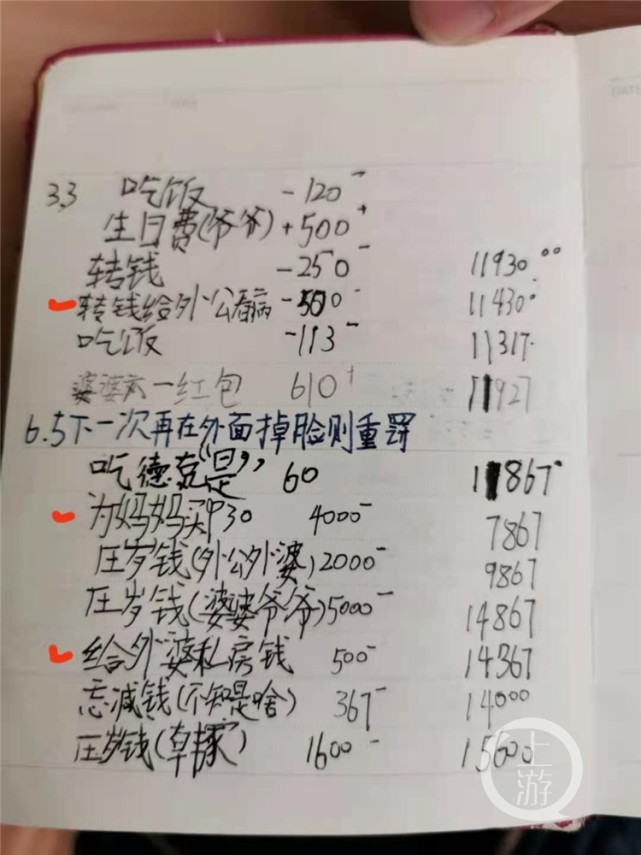 3.3 吃饭 -120⁻
生日费(爷爷) +500⁺
转钱 -250⁻ 11930.⁰⁰
转钱给外公看病 -500⁻ 11430.
吃饭 -113⁻ 11317.
婆婆 一红包 610⁺ 11927
6.5下一次再在外面掉脸则重罚
吃德克“是” 60 11867
为妈妈买P30 4000⁻ 7867
压岁钱(外公外婆) 2000⁻ 9867
压岁钱(婆婆爷爷) 5000⁻ 14867
给外婆私房钱 500⁻ 14367
忘减钱(不知是啥) 367⁻ 14000
压岁钱() 1600⁻ 15600
上游